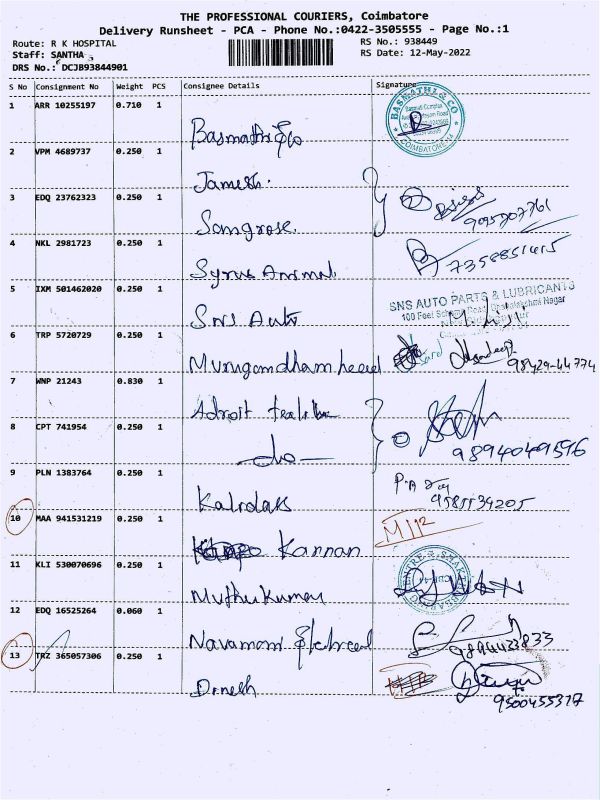 THE PROFESSIONAL COURIERS, Coimbatore
Delivery Runsheet - PCA - Phone No.:0422-3505555 - Page No.:1
Route: R K HOSPITAL RS No.: 938449
Staff: SANTHA RS Date: 12-May-2022
DRS No.: DCJB93844901
S No Consignment No Weight PCS Consignee Details Signature
1 ARR 10255197 0.710 1
BASMATHI & CO
COIMBATORE
Basmathi & Co
2 VPM 4689737 0.250 1
Jamesh.
3 EDQ 23762323 0.250 1
Somgrose.
4 NKL 2981723 0.250 1
Syrus Animal 7358851415
5 IXM 501462020 0.250 1
SNS AUTO PARTS & LUBRICANTS
100 Feet Nagar
SNS Auto
6 TRP 5720729 0.250 1
Murugamdham 98429-44774
7 WNP 21243 0.830 1
Adroit
8 CPT 741954 0.250 1
-do- 9894049596
9 PLN 1383764 0.250 1
Kalrdaks 9585534205
10 MAA 941531219 0.250 1
Kannan
11 KLI 530070696 0.250 1
Muthu Kumar
12 EDQ 16525264 0.060 1
Navamani
13 TRZ 365057306 0.250 1
Dinesh 9500455317